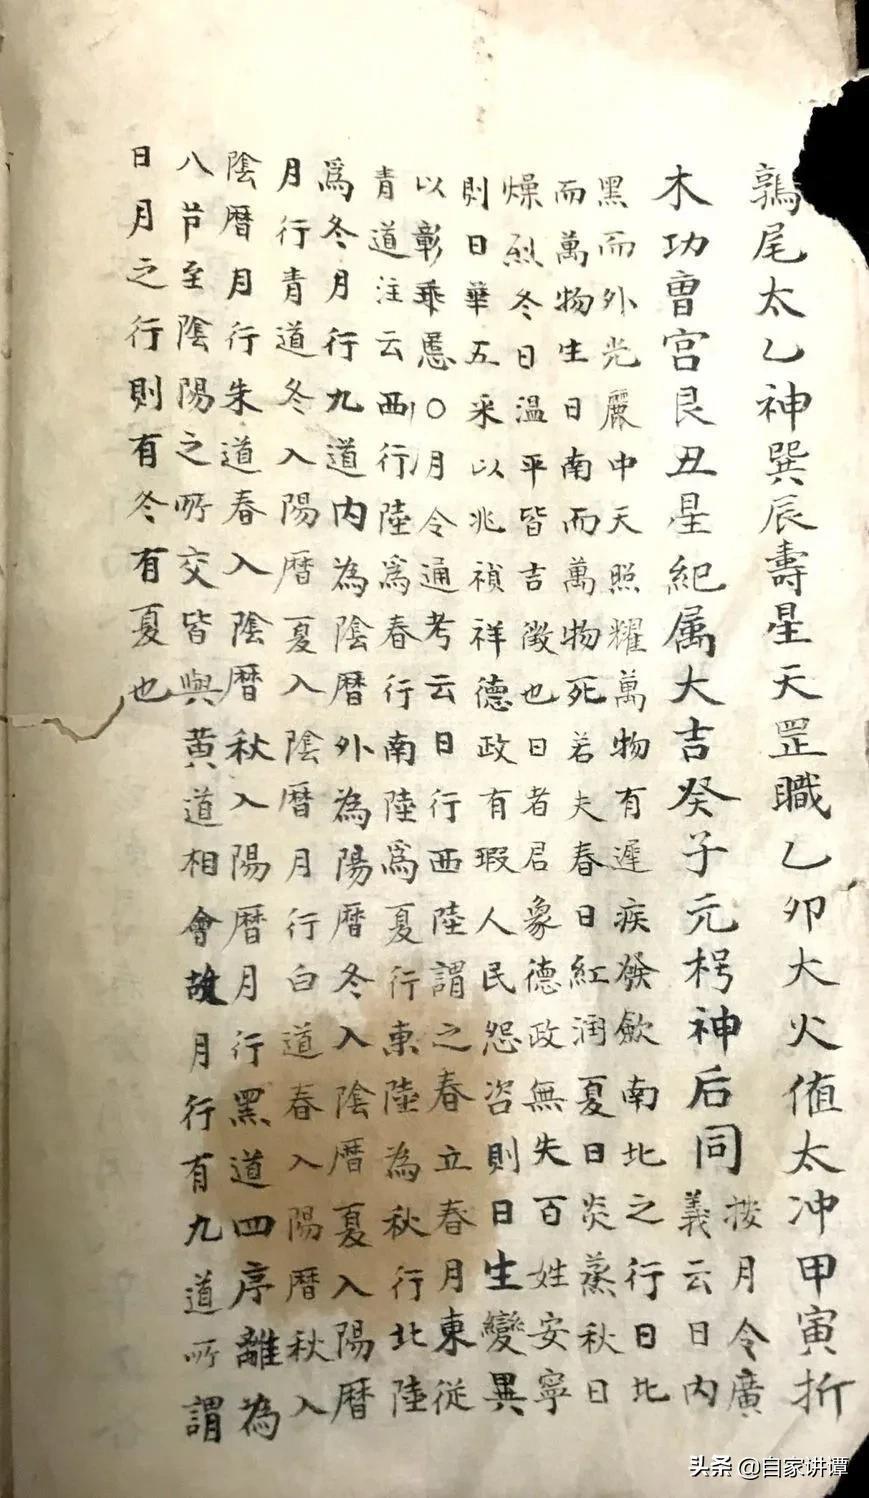 鶉尾太乙神巽辰壽星天罡職乙卯大火值太冲甲寅折
木功曹宫艮丑星紀属大吉癸子元枵神后同
按月令廣
義云日内
黑而外光麗中天照耀萬物有遲疾發歛南北之行日北
而萬物生日南而萬物死若夫春日紅润夏日炎蒸秋日
燥烈冬日温平皆吉徵也日者君象德政無失百姓安寧
則日華五采以兆禎祥德政有瑕人民怨咨則日生變異
以彰乖慝〇月令通考云日行西陸謂之春立春月東従
青道注云西行陸爲春行南陸爲夏行東陸為秋行北陸
爲冬月行九道内為陰曆外為陽曆冬入陰曆夏入陽曆
月行青道冬入陽曆夏入陰曆月行白道春入陽曆秋入
陰曆月行朱道春入陰曆秋入陽曆月行黑道四序離為
八节至陰陽之所交皆與黄道相會故月行有九道所謂
日月之行則有冬有夏也
头条 @自家讲谭